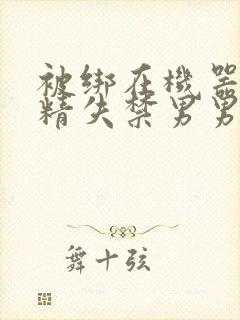 被绑在機器
精失禁男男
舞十弦